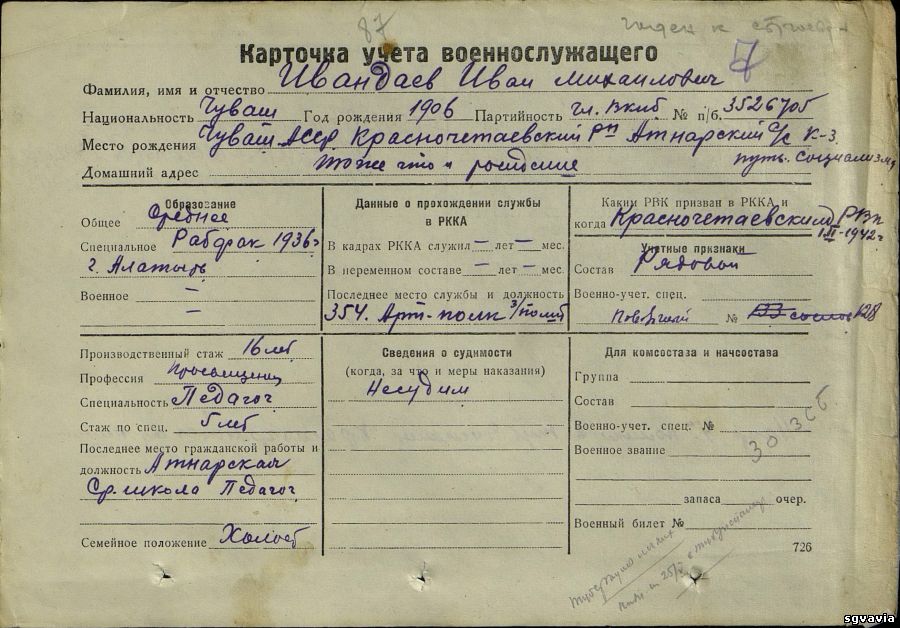 87
годен к строевой
Карточка учета военнослужащего
7
Фамилия, имя и отчество Ивандаев Иван Михаилович
Национальность Чуваш Год рождения 1906 Партийность чл. вкпб № п/б. 3526705
Место рождения Чуваш АССР Красночетаевский рн Атнарский с/с к-з.
путь социализма
Домашний адрес тоже что и
Образование
Общее среднее
Специальное Рабфак 1936г
г. Алатырь
Военное —
—
Данные о прохождении службы
в РККА
В кадрах РККА служил — лет — мес.
В переменном составе — лет — мес.
Последнее место службы и должность
354. Арт-полк
Каким РВК призван в РККА и
когда Красночетаевский РВК
III-1942г
Учетные признаки
Состав Рядовой
Военно-учет. спец.
№ 128
Производственный стаж 16 лет
Профессия
Специальность Педагог
Стаж по спец. 5 лет
Последнее место гражданской работы и
должность Атнарская
Ср. школа Педагог
Семейное положение Холост
Сведения о судимости
(когда, за что и меры наказания)
Несудим
Для комсостава и начсостава
Группа
Состав
Военно-учет. спец. №
Военное звание
30 зсб
запаса очер.
Военный билет №
726
sgvavia